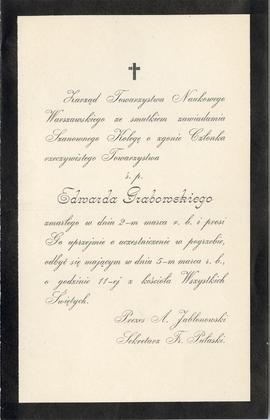 Zarząd Towarzystwa Naukowego
Warszawskiego ze smutkiem zawiadamia
Szanownego Kolegę o zgonie Członka
rzeczywistego Towarzystwa
ś. p.
Edwarda Grabowskiego
zmarłego w dniu 2-m marca r. b. i prosi
Go uprzejmie o uczestniczenie w pogrzebie,
odbyć się mającym w dniu 5-m marca r. b.,
o godzinie 11-ej z kościoła Wszystkich
Świętych.
Prezes A. Jabłonowski
Sekretarz K. Pułaski.